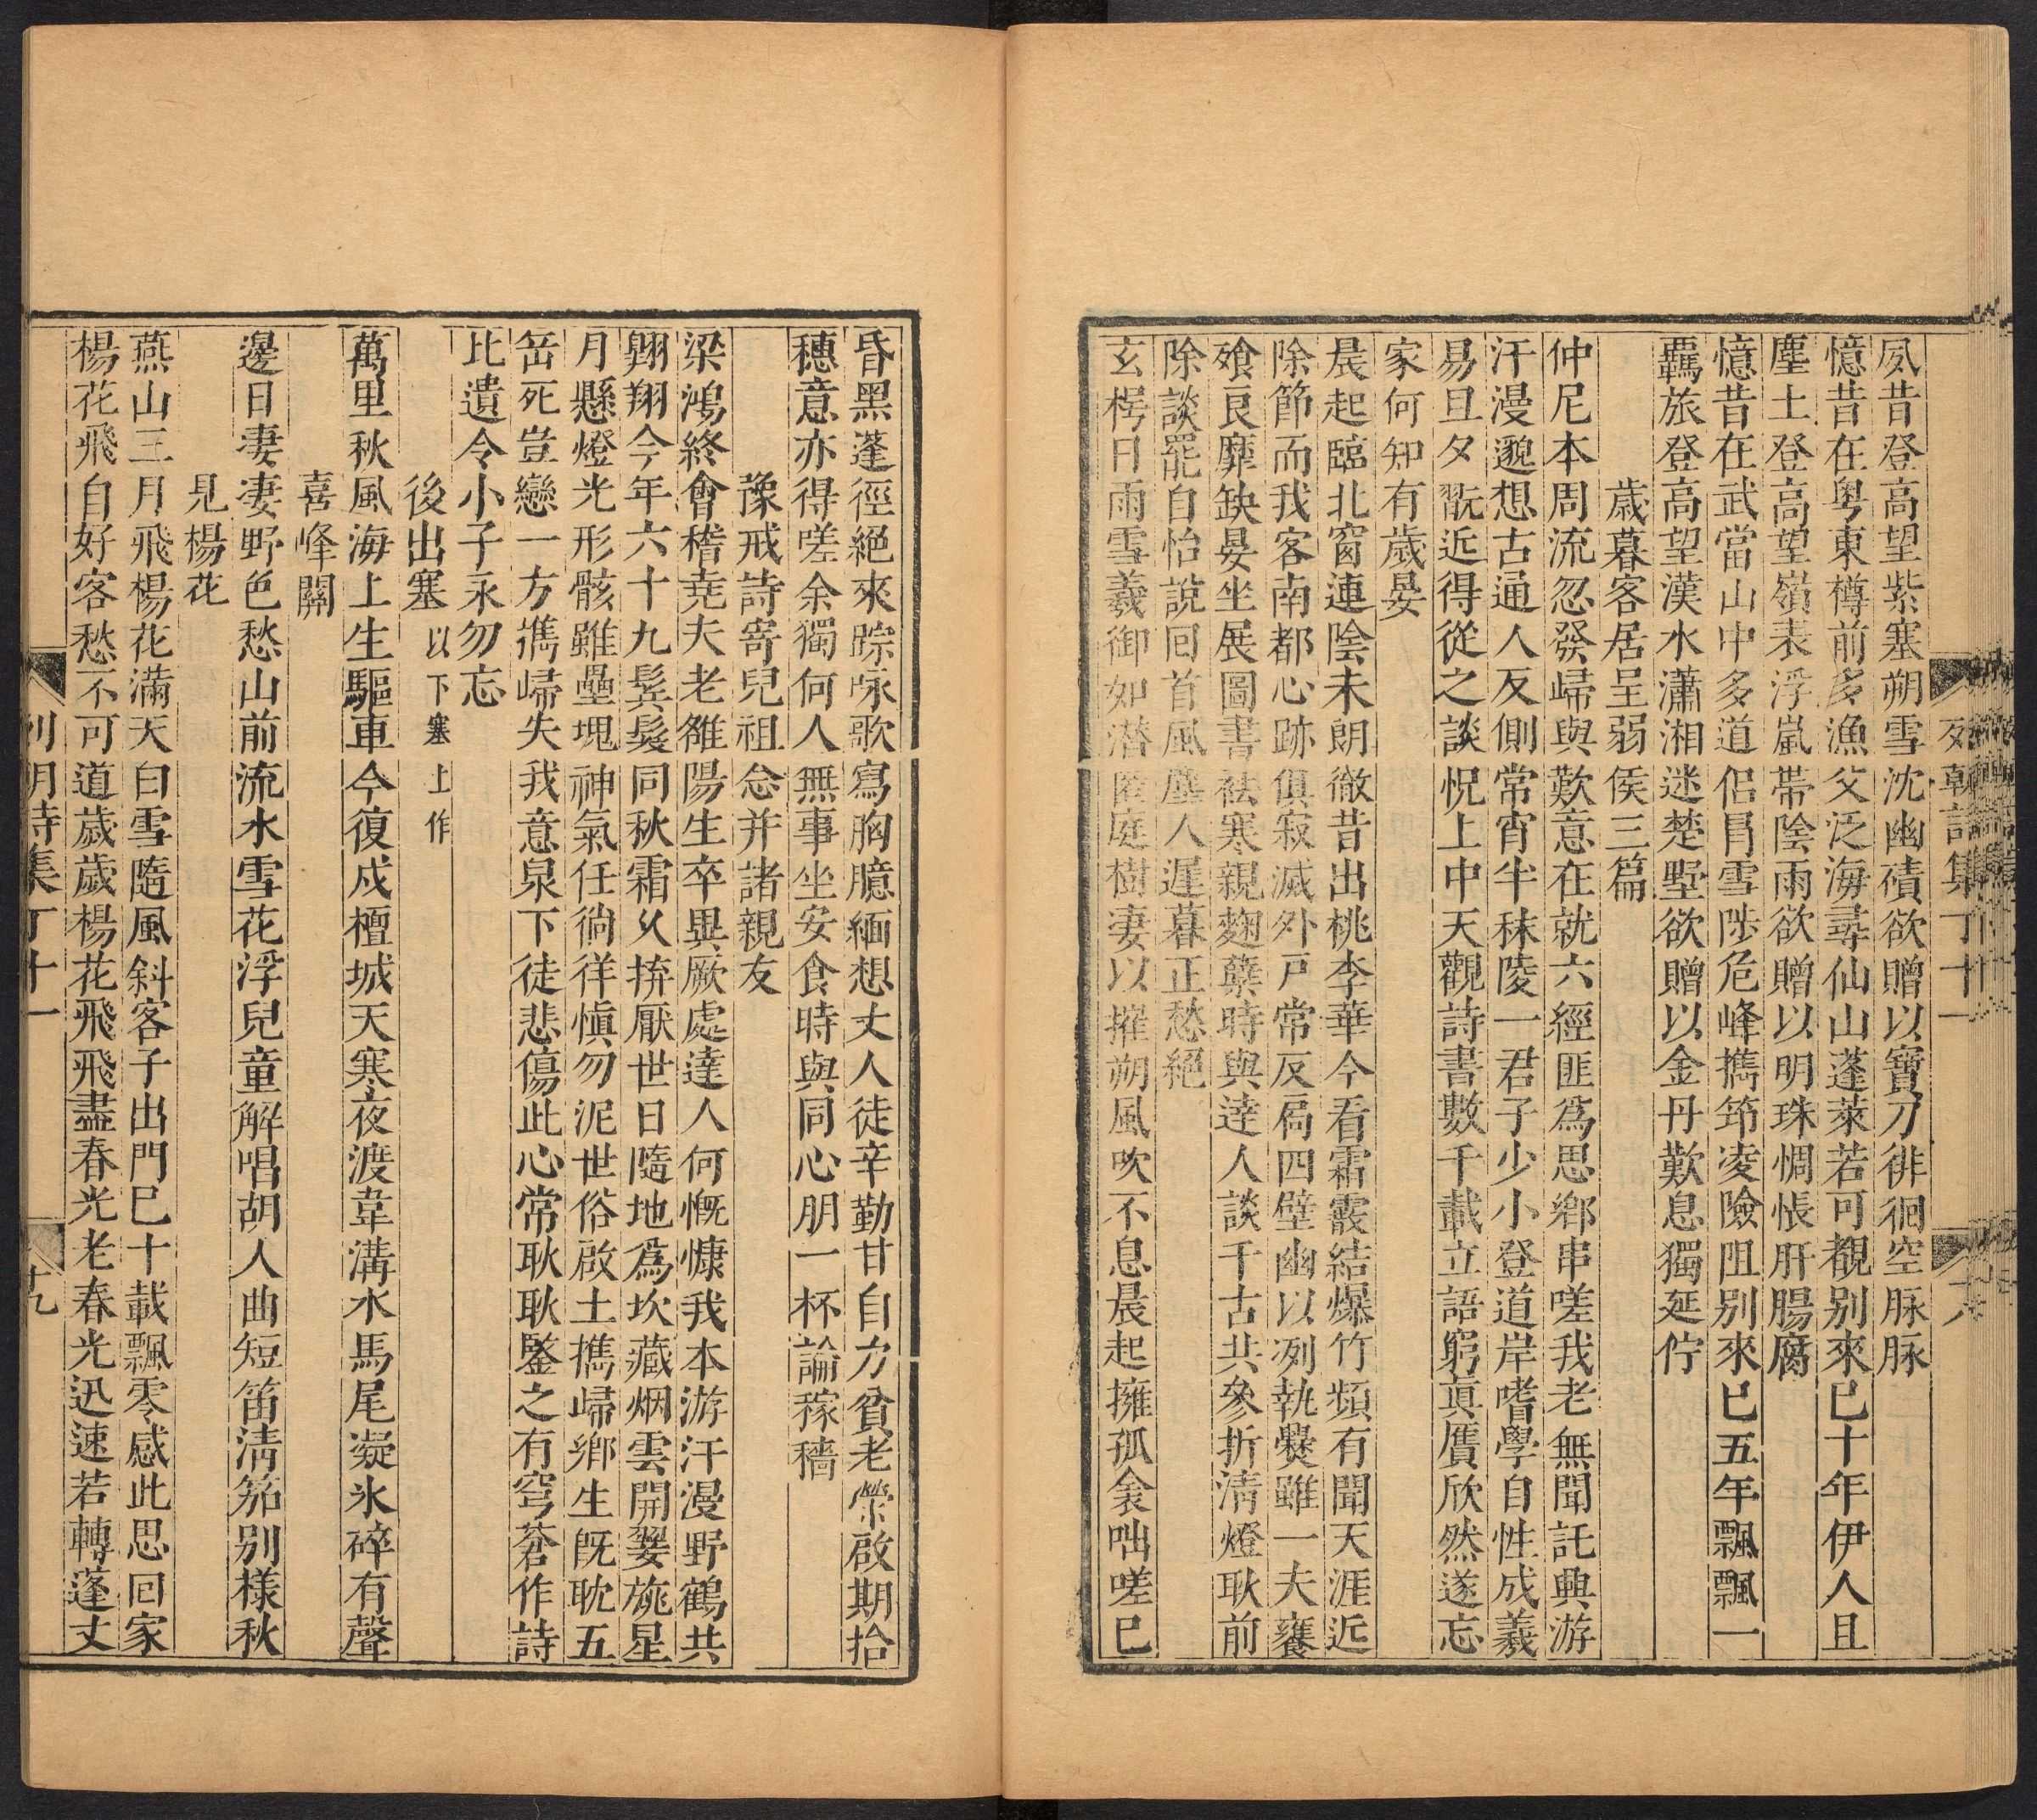 夙昔登高望紫塞朔雪沈幽磧欲贈以寶刀徘徊空脉脉
憶昔在粤東樽前多漁父泛海尋仙山蓬萊若可覩别來已十年伊人且
塵土登高望嶺表浮嵐帶陰雨欲贈以明珠惆悵肝腸腐
憶昔在武當山中多道侣冐雪陟危峰攜筇凌險阻别來已五年飄飄一
羈旅登高望漢水瀟湘迷楚墅欲贈以金丹歎息獨延佇
歲暮客居呈弱侯三篇
仲尼本周流忽發歸與歎意在就六經匪爲思鄕串嗟我老無聞託興游
汗漫邈想古通人反側常宵半秣陵一君子少小登道岸嗜學自性成羲
易旦夕翫近得從之談怳上中天觀詩書數千載立語窮眞贋欣然遂忘
家何知有歲晏
晨起臨北窗連陰未朗徹昔出桃李華今看霜霰結爆竹頻有聞天涯近
除節而我客南都心跡俱寂滅外戸常反扃四壁幽以冽執爨雖一夫饔
飧良靡缺晏坐展圖書袪寒親麴糵時與逹人談千古共參折淸燈耿前
除談罷自怡説回首風塵人遲暮正愁絕
玄枵日雨雪羲御如潛 庭樹妻以摧朔風吹不息晨起擁孤衾咄嗟已
列朝詩集丁十一
十八
昏黑蓬徑絕來踪咏歌寫胸臆緬想丈人徒辛勤甘自力貧老榮啟期拾
穗意亦得嗟余獨何人無事坐安食時與同心朋一杯論稼穡
豫戒詩寄兒祖念并諸親友
梁鴻終會稽堯夫老雒陽生卒異厥處達人何慨慷我本游汗漫野鶴共
翺翔今年六十九鬂髮同秋霜久捹厭世日隨地爲坎藏烟雲開翣旐星
月懸燈光形骸雖壘塊神氣任徜徉愼勿泥世俗啟土攜歸鄕生旣耽五
岳死豈戀一方攜歸失我意泉下徒悲傷此心常耿耿鑒之有穹蒼作詩
比遺令小子永勿忘
後出塞以下塞上作
萬里秋風海上生驅車今復戍檀城天寒夜渡韋溝水馬尾凝氷碎有聲
喜峰關
邊日凄凄野色愁山前流水雪花浮兒童解唱胡人曲短笛淸笳别樣秋
見楊花
燕山三月飛楊花滿天白雪隨風斜客子出門已十載飄零感此思回家
楊花飛自好客愁不可道歲歲楊花飛飛盡春光老春光迅速若轉蓬丈
列朝詩集丁十一
十九